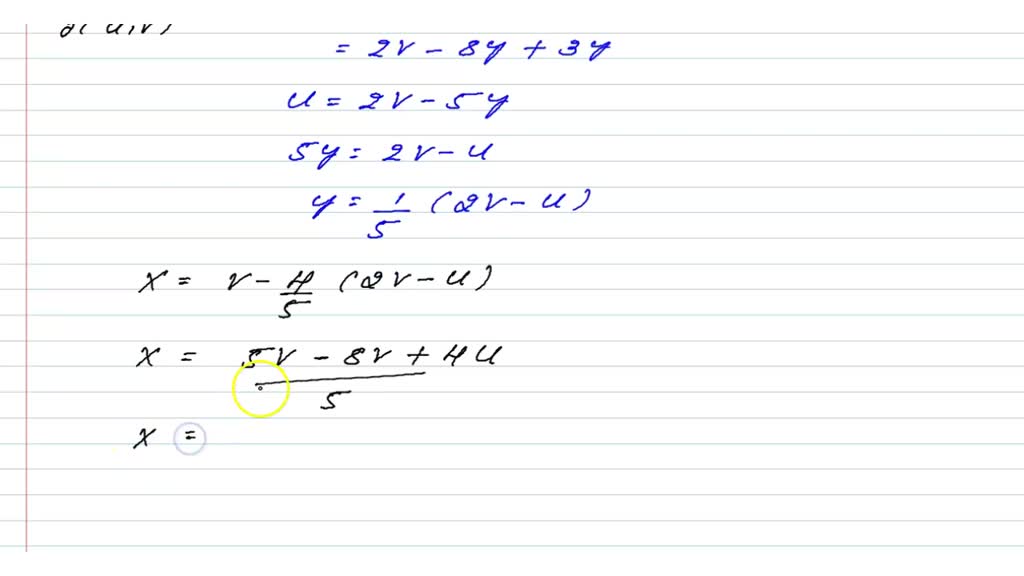 ∂(u,v)
= 2v - 8y + 3y
u = 2v - 5y
5y = 2v - u
y = 1/5 (2v - u)
x = v - 4/5 (2v - u)
x = 5v - 8v + 4u / 5
x =